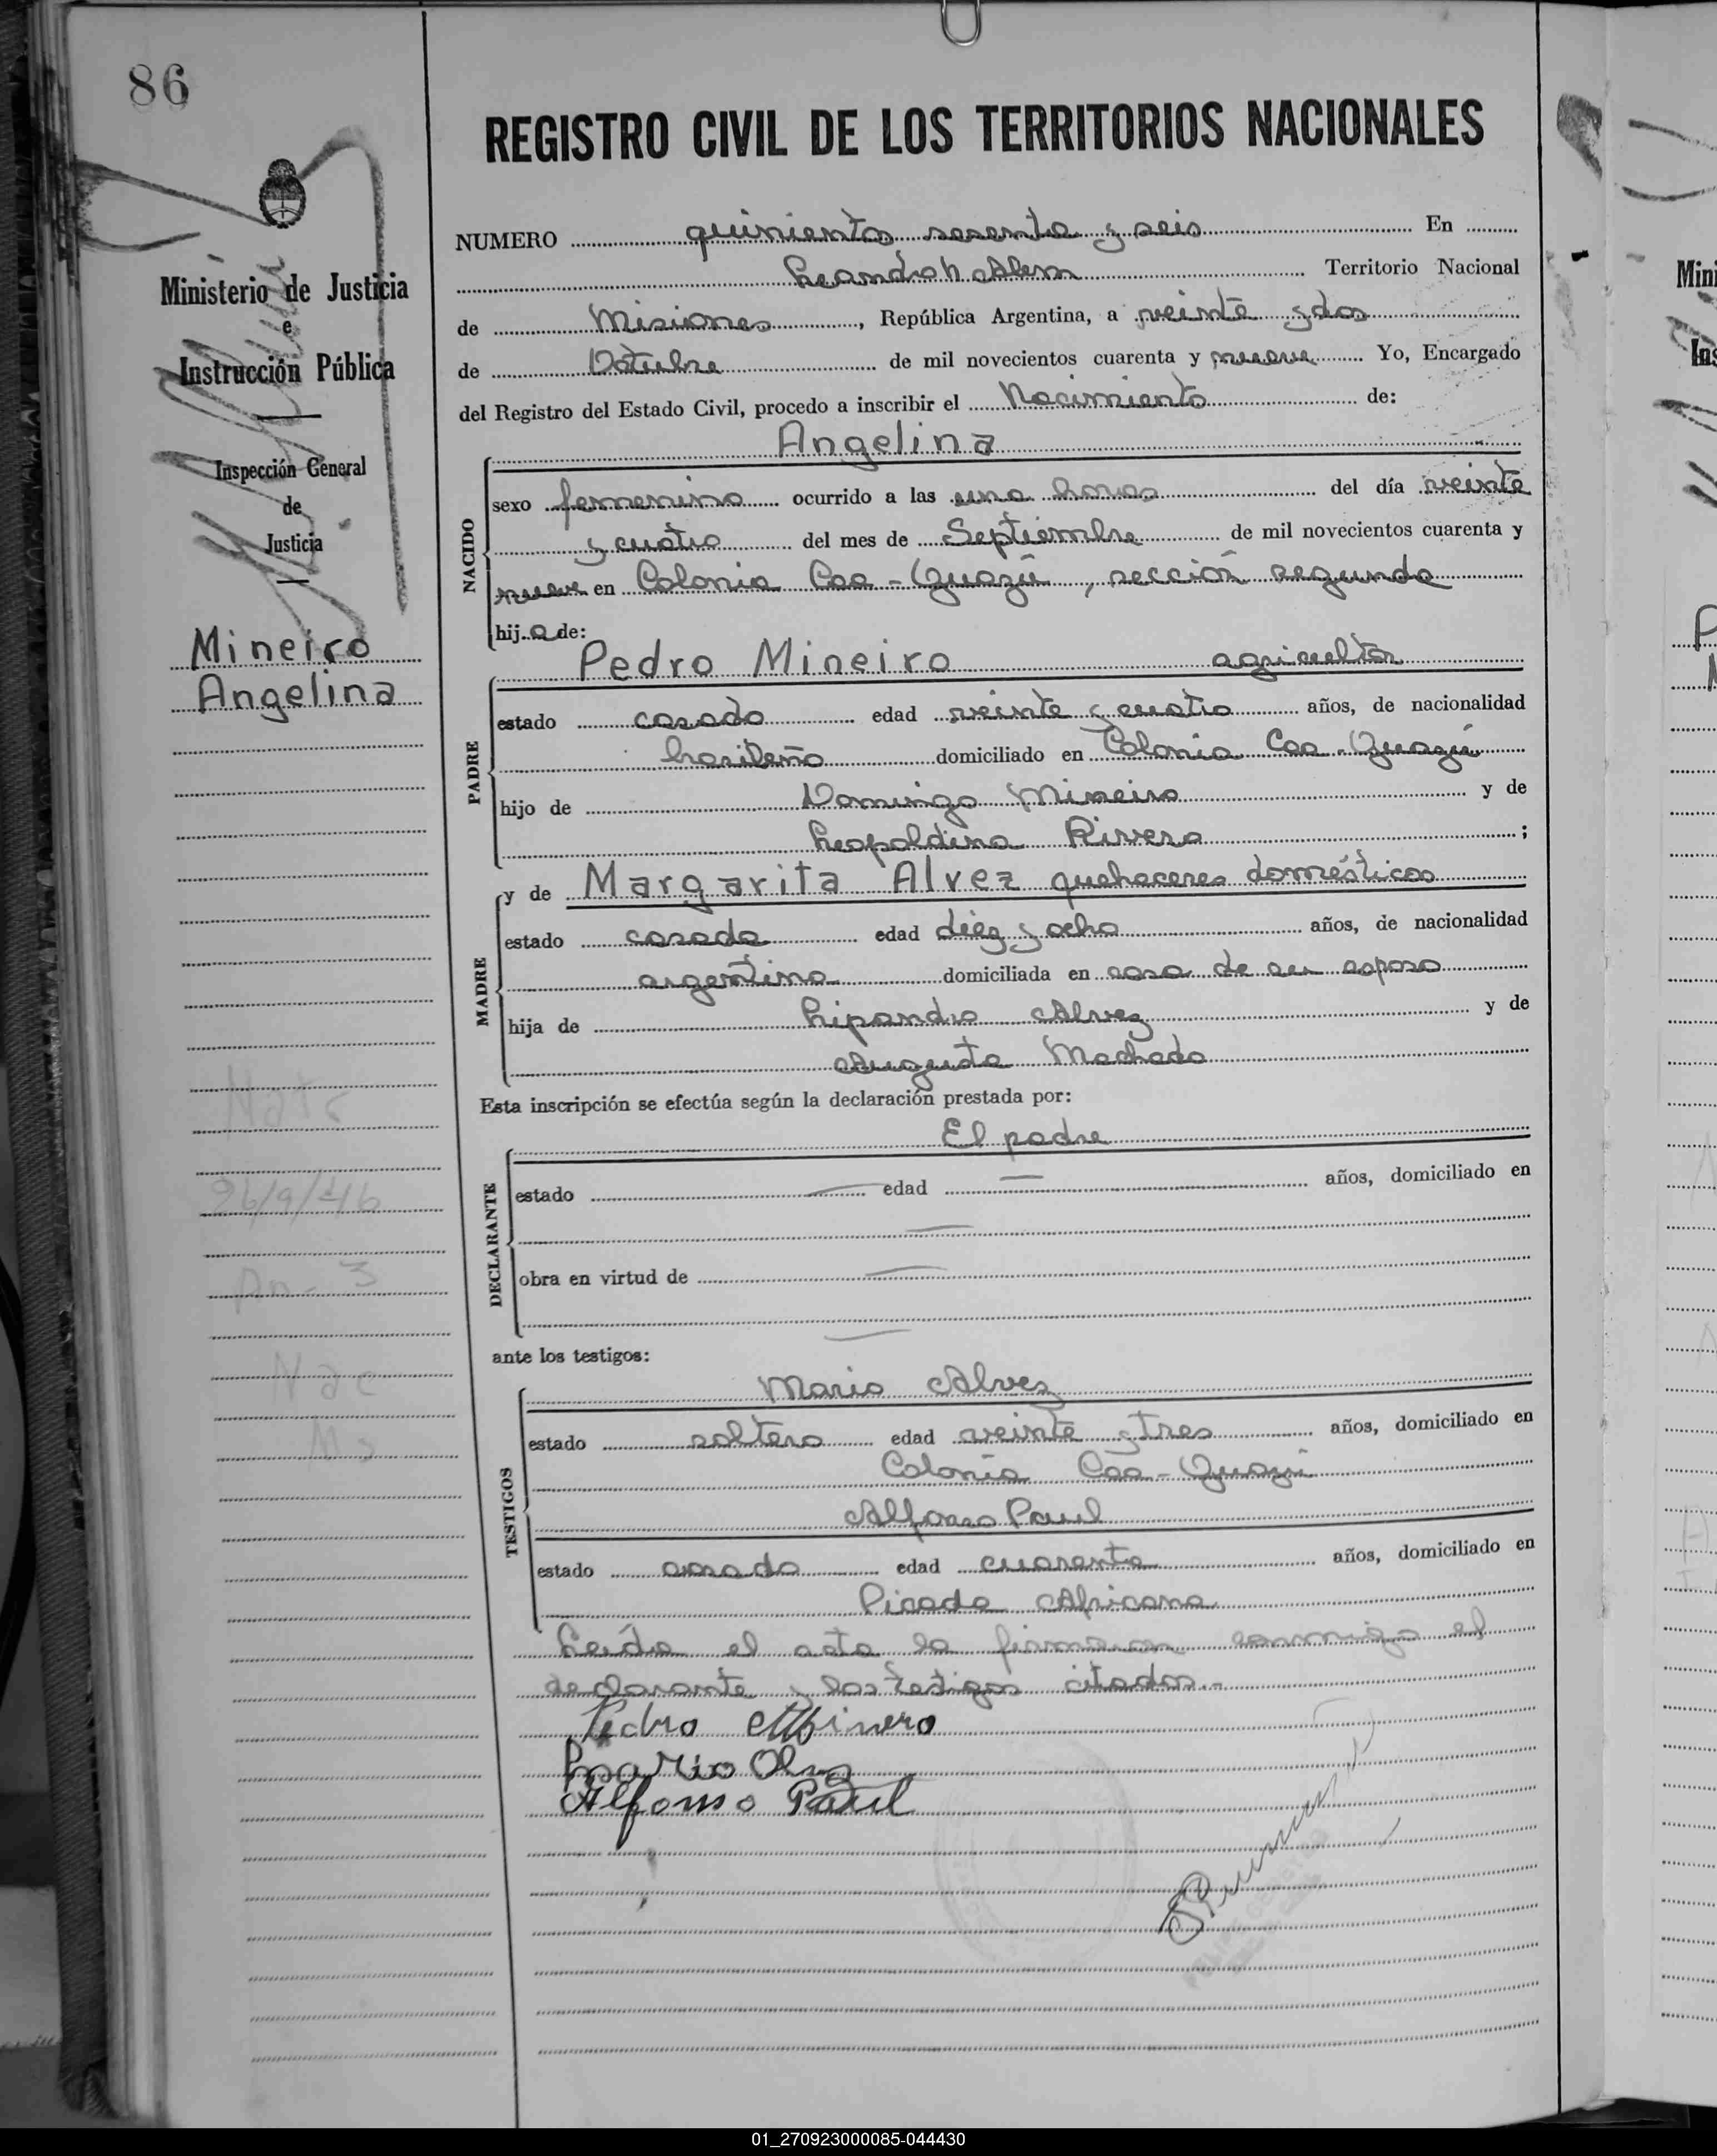 86
REGISTRO CIVIL DE LOS TERRITORIOS NACIONALES
Ministerio de Justicia
e
Instrucción Pública
Inspección General
de
Justicia
Mineiro
Angelina
NUMERO quinientos sesenta y seis En
Leandro N. Alem Territorio Nacional
de Misiones, República Argentina, a veinte y dos
de Octubre de mil novecientos cuarenta y nueve Yo, Encargado
del Registro del Estado Civil, procedo a inscribir el Nacimiento de:
Angelina
NACIDO
sexo femenino ocurrido a las una horas del día veinte
y cuatro del mes de Septiembre de mil novecientos cuarenta y
nueve en Colonia Caa-Guazú, sección segunda
hija de:
Pedro Mineiro agricultor
PADRE
estado casado edad veinte y cuatro años, de nacionalidad
brasileño domiciliado en Colonia Caa-Guazú
hijo de Domingo Mineiro y de
Leopoldina Rivero;
y de Margarita Alvez quehaceres domésticos
MADRE
estado casada edad diez y ocho años, de nacionalidad
argentina domiciliada en casa de su esposo
hija de Lipandro Alvez y de
Augusta Machado
Esta inscripción se efectúa según la declaración prestada por:
El padre
DECLARANTE
estado — edad — años, domiciliado en
—
obra en virtud de —
—
ante los testigos:
Mario Alvez
TESTIGOS
estado soltero edad veinte y tres años, domiciliado en
Colonia Caa-Guazú
Alfonso Paul
estado casado edad cuarenta años, domiciliado en
Picada Africana
Leída el acta la firmaron conmigo el
declarante y los testigos citados.-
Pedro Minero
Mario
Alfonso Paul
Nac
01_270923000085-044430